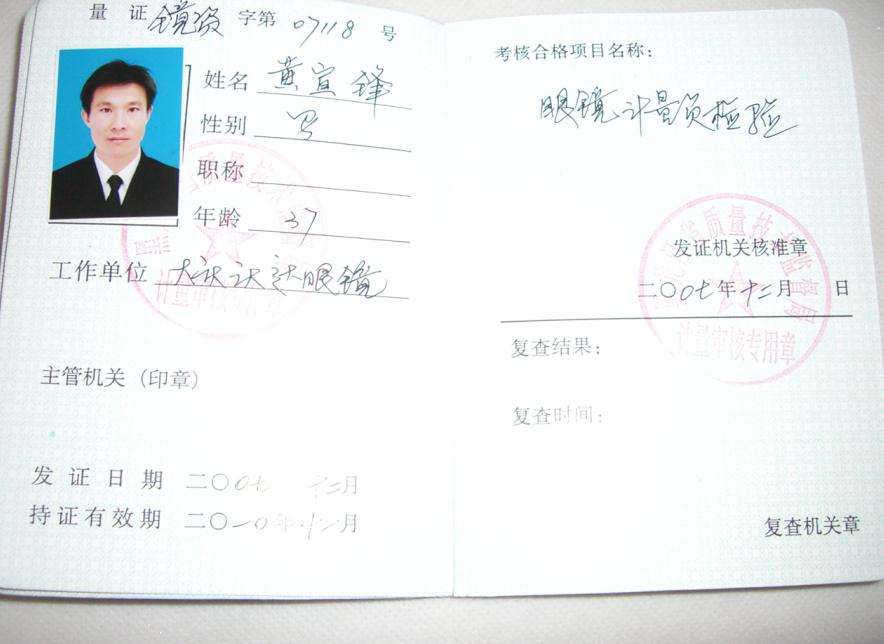 量 证 镜资 字第 07118 号
姓名 黄宣锋
性别 男
职称
年龄 37
工作单位 大庆 眼镜
主管机关（印章）
发 证 日 期 二〇〇七 十二月
持证有效期 二〇一〇年十一月
质量技术监督
计量审核专用章
考核合格项目名称：
眼镜计量员检验
发证机关核准章
二〇〇七年十二月 日
省质量技术监督局
计量审核专用章
复查结果：
复查时间：
复查机关章